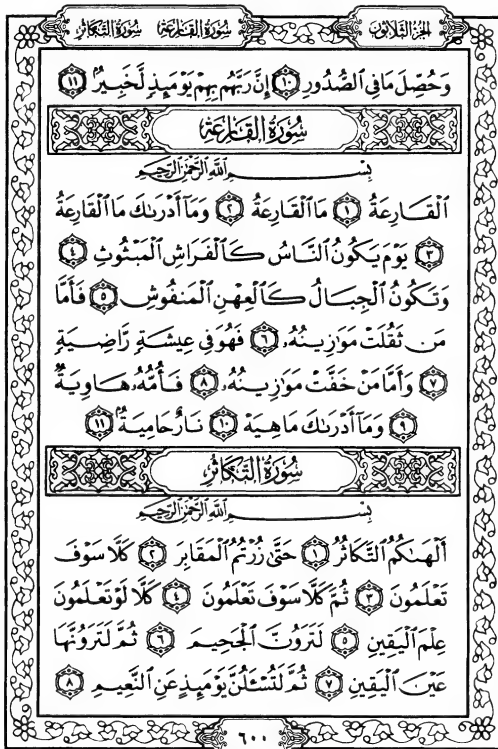 سُورَةُ التَّكَاثُرِ سُورَةُ القَارِعَةِ الجُزْءُ الثَّلَاثُونَ
وَحُصِّلَ مَا فِي ٱلصُّدُورِ ١٠ إِنَّ رَبَّهُم بِهِمۡ يَوۡمَئِذٖ لَّخَبِيرُۢ ١١
سُورَةُ القَارِعَةِ
بِسۡمِ ٱللَّهِ ٱلرَّحۡمَٰنِ ٱلرَّحِيمِ
ٱلۡقَارِعَةُ ١ مَا ٱلۡقَارِعَةُ ٢ وَمَآ أَدۡرَىٰكَ مَا ٱلۡقَارِعَةُ
٣ يَوۡمَ يَكُونُ ٱلنَّاسُ كَٱلۡفَرَاشِ ٱلۡمَبۡثُوثِ ٤
وَتَكُونُ ٱلۡجِبَالُ كَٱلۡعِهۡنِ ٱلۡمَنفُوشِ ٥ فَأَمَّا
مَن ثَقُلَتۡ مَوَٰزِينُهُۥ ٦ فَهُوَ فِي عِيشَةٖ رَّاضِيَةٖ
٧ وَأَمَّا مَنۡ خَفَّتۡ مَوَٰزِينُهُۥ ٨ فَأُمُّهُۥ هَاوِيَةٞ
٩ وَمَآ أَدۡرَىٰكَ مَا هِيَهۡ ١٠ نَارٌ حَامِيَةُۢ ١١
سُورَةُ التَّكَاثُرِ
بِسۡمِ ٱللَّهِ ٱلرَّحۡمَٰنِ ٱلرَّحِيمِ
أَلۡهَىٰكُمُ ٱلتَّكَاثُرُ ١ حَتَّىٰ زُرۡتُمُ ٱلۡمَقَابِرَ ٢ كَلَّا سَوۡفَ
تَعۡلَمُونَ ٣ ثُمَّ كَلَّا سَوۡفَ تَعۡلَمُونَ ٤ كَلَّا لَوۡ تَعۡلَمُونَ
عِلۡمَ ٱلۡيَقِينِ ٥ لَتَرَوُنَّ ٱلۡجَحِيمَ ٦ ثُمَّ لَتَرَوُنَّهَا
عَيۡنَ ٱلۡيَقِينِ ٧ ثُمَّ لَتُسۡـَٔلُنَّ يَوۡمَئِذٍ عَنِ ٱلنَّعِيمِ ٨
٦٠٠